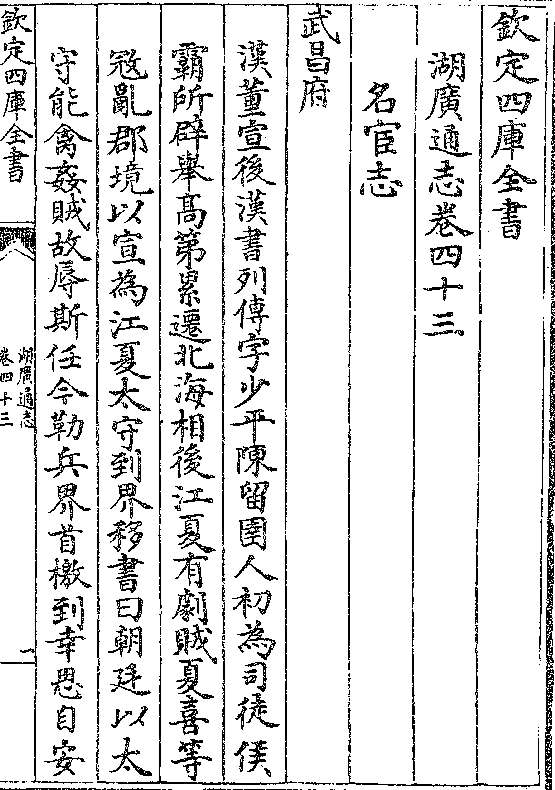 欽定四庫全書
湖廣通志卷四十三
名宦志
武昌府
漢董宣後漢書列傳字少平陳留圉人初為司徒侯
霸所辟舉髙第累遷北海相後江夏有劇賊夏喜等
寇亂郡境以宣為江夏太守到界移書曰朝廷以太
守能禽姦賊故辱斯任今勒兵界首檄到幸思自安
欽定四庫全書
湖廣通志
卷四十三
一